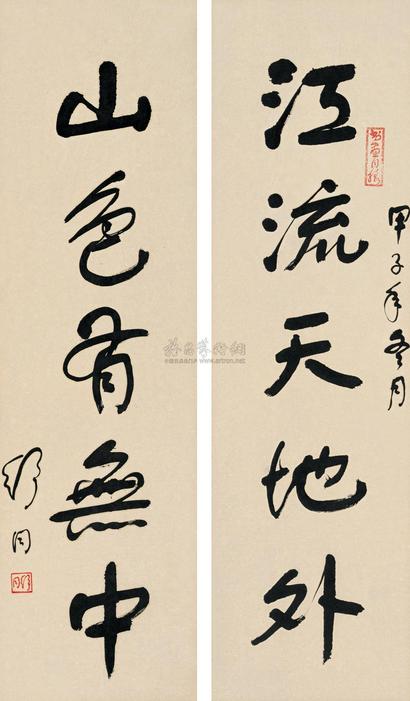 江流天地外
甲子年冬月
山色有無中
舒同
www.artron.net